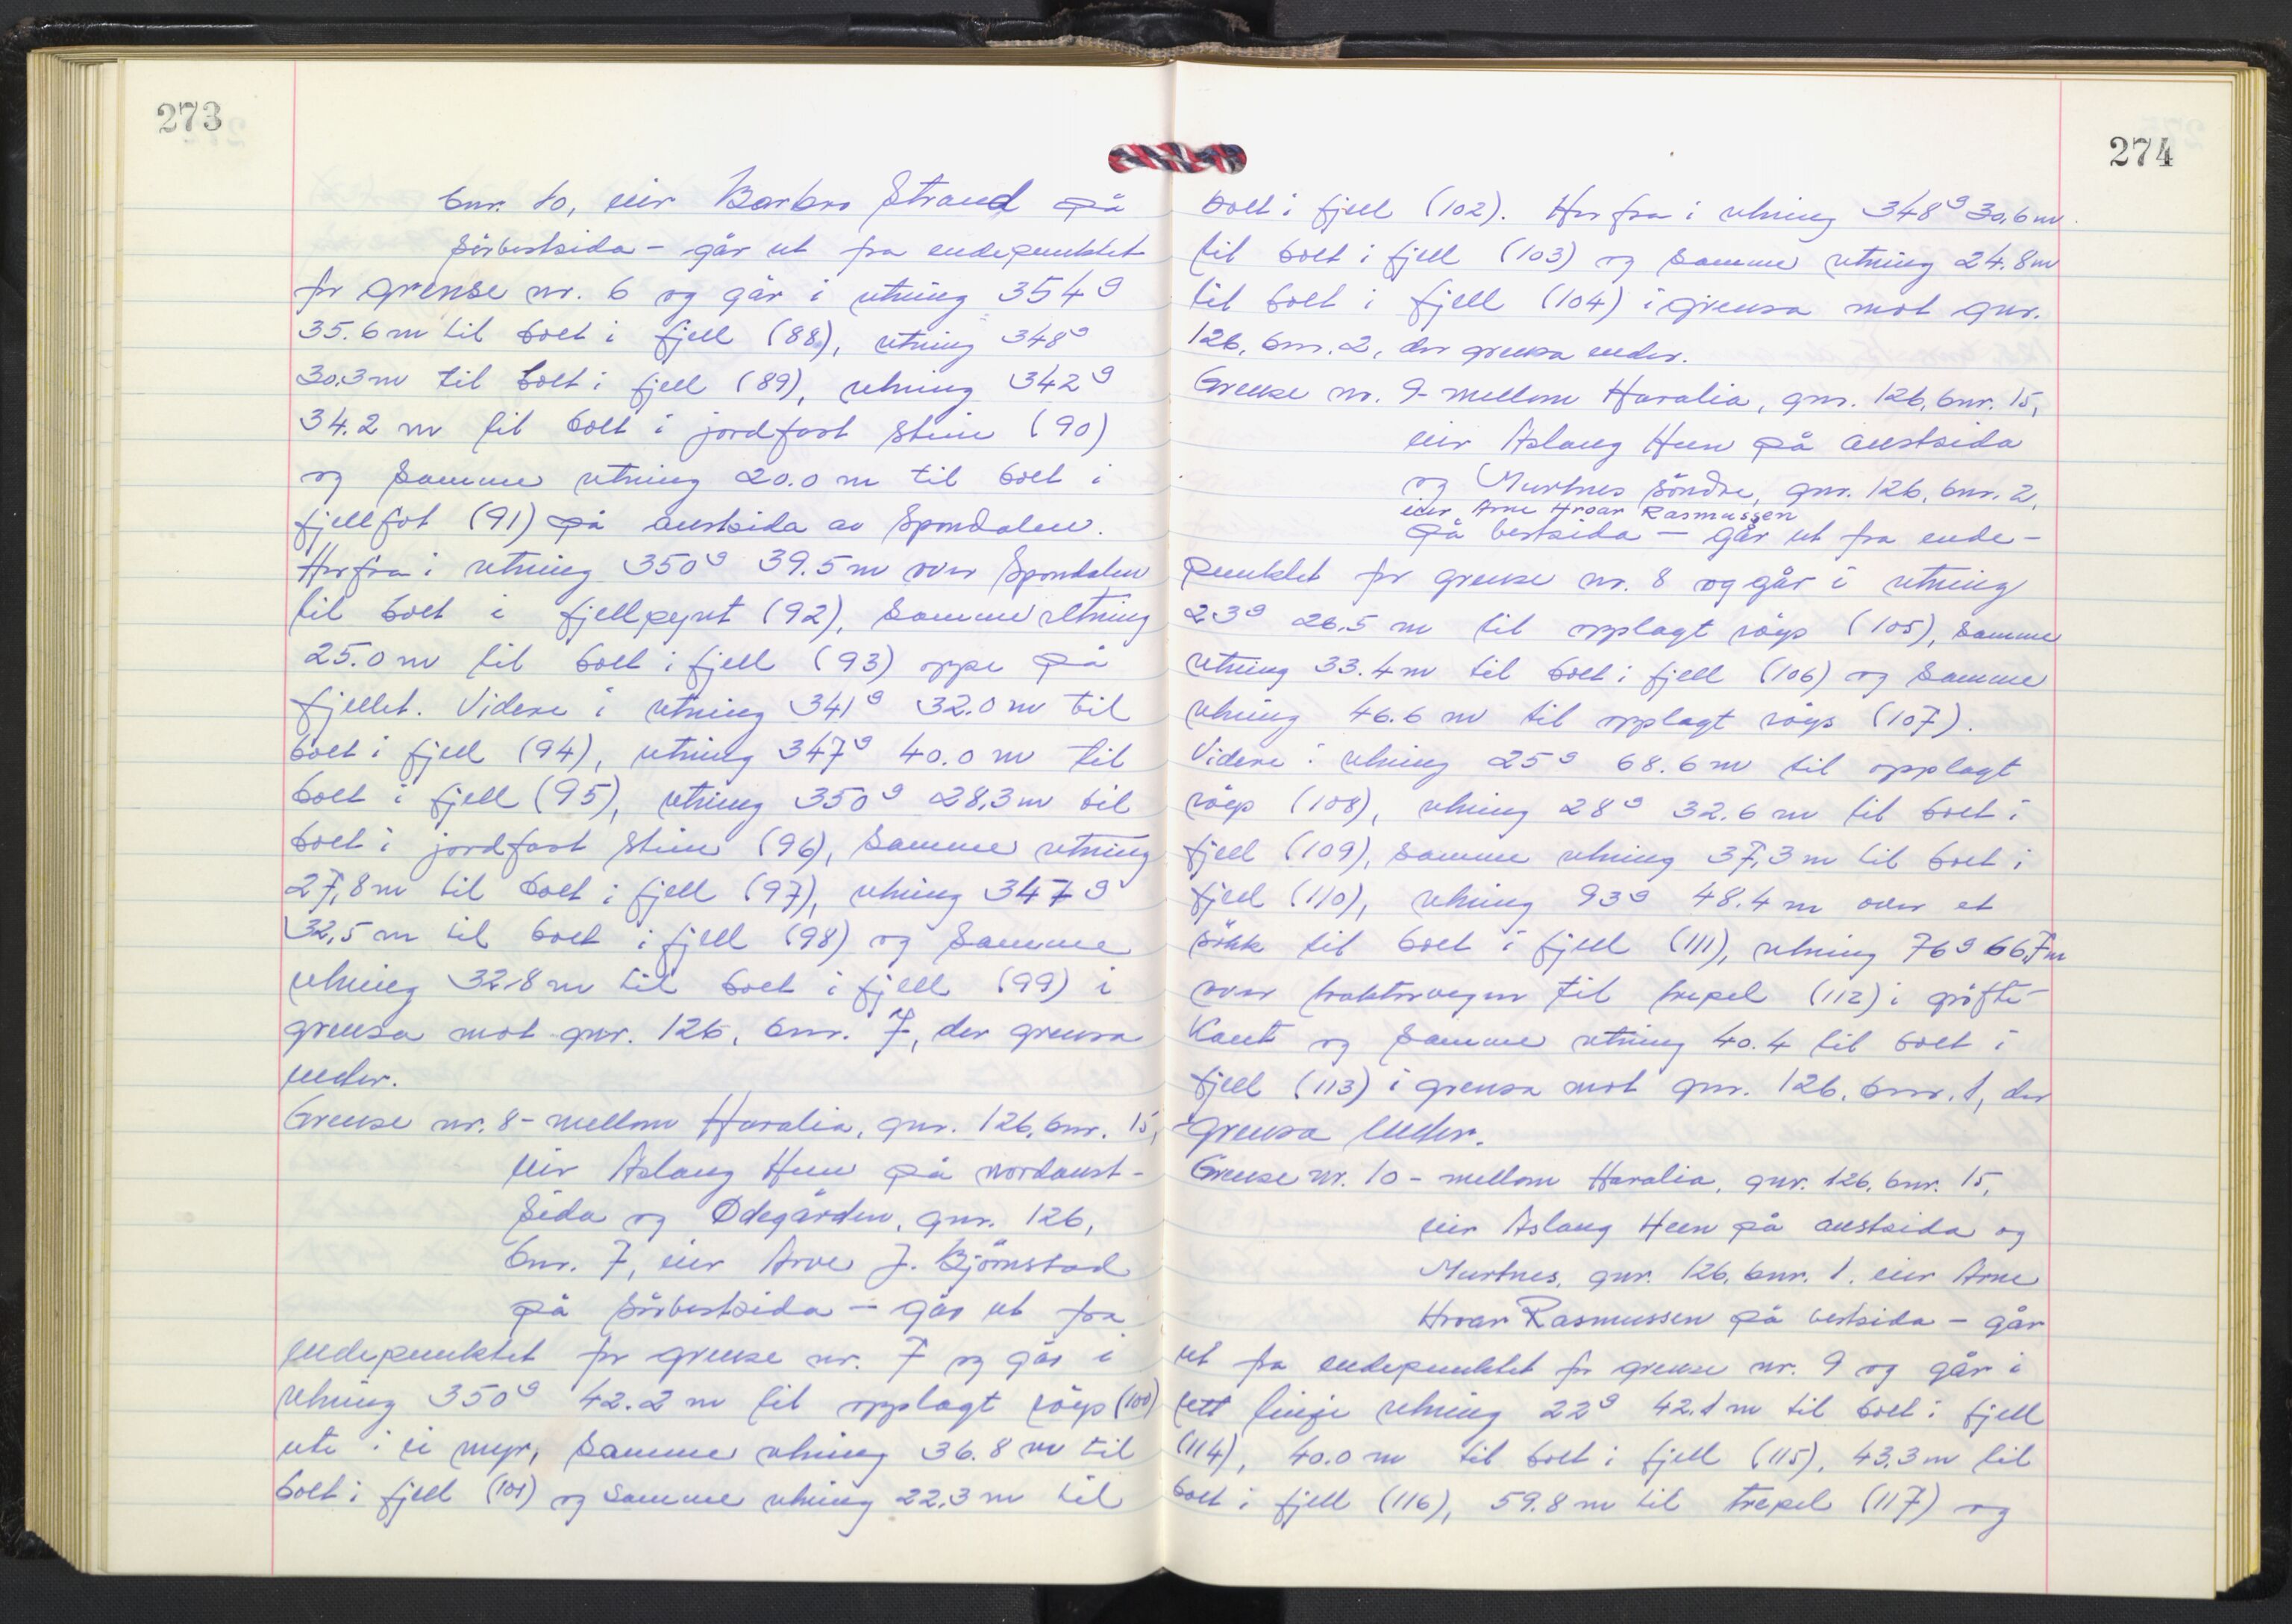 273
bnr. 10, eier Barbro Strand på
sörvestsida - går ut fra endepunktet
for grense nr. 6 og går i retning 354g
35.6 m til bolt i fjell (88), retning 348g
30.3 m til bolt i fjell (89), retning 342g
34.2 m til bolt i jordfast stein (90)
og samme retning 20.0 m til bolt i
fjellfot (91) på austsida av Spondalen.
Herfra i retning 350g 39.5 m over Spondalen
til bolt i fjellpynt (92), samme retning
25.0 m til bolt i fjell (93) oppe på
fjellet. Videre i retning 341g 32.0 m til
bolt i fjell (94), retning 347g 40.0 m til
bolt i fjell (95), retning 350g 28,3 m til
bolt i jordfast stein (96), samme retning
27,8 m til bolt i fjell (97), retning 347g
32,5 m til bolt i fjell (98) og samme
retning 32,8 m til bolt i fjell (99) i
grensa mot gnr. 126, bnr. 7, der grensa
ender.
Grense nr. 8 - mellom Haralia, gnr. 126, bnr. 15,
eier Åslaug Heen på nordaust-
sida og Ödegården, gnr. 126,
bnr. 7, eier Arve J. Björnstad
på sörvestsida - går ut fra
endepunktet for grense nr. 7 og går i
retning 350g 42.2 m til opplagt röys (100)
ute i ei myr, samme retning 36.8 m til
bolt i fjell (101) og samme retning 22,3 m til
274
bolt i fjell (102). Herfra i retning 348g 30,6 m
til bolt i fjell (103) og samme retning 24.8 m
til bolt i fjell (104) i grensa mot gnr.
126, bnr. 2, der grensa ender.
Grense nr. 9 - mellom Haralia, gnr. 126, bnr. 15,
eier Åslaug Heen på austsida
og Murtnes söndre, gnr. 126, bnr. 2,
eier Arne Hroar Rasmussen
på vestsida - går ut fra ende-
punktet for grense nr. 8 og går i retning
23g 26.5 m til opplagt röys (105), samme
retning 33.4 m til bolt i fjell (106) og samme
retning 46.6 m til opplagt röys (107).
Videre i retning 25g 68.6 m til opplagt
röys (108), retning 28g 32.6 m til bolt i
fjell (109), samme retning 37,3 m til bolt i
fjell (110), retning 93g 48.4 m over et
sökk til bolt i fjell (111), retning 76g 66,7 m
over traktorvegen til trepel (112) i gröfte-
kant og samme retning 40.4 til bolt i
fjell (113) i grensa mot gnr. 126, bnr. 1, der
grensa ender.
Grense nr. 10 - mellom Haralia, gnr. 126, bnr. 15,
eier Åslaug Heen på austsida og
Murtnes, gnr. 126, bnr. 1, eier Arne
Hroar Rasmussen på vestsida - går
ut fra endepunktet for grense nr. 9 og går i
rett linje retning 22g 42.1 m til bolt i fjell
(114), 40.0 m til bolt i fjell (115), 43.3 m til
bolt i fjell (116), 59.8 m til trepel (117) og